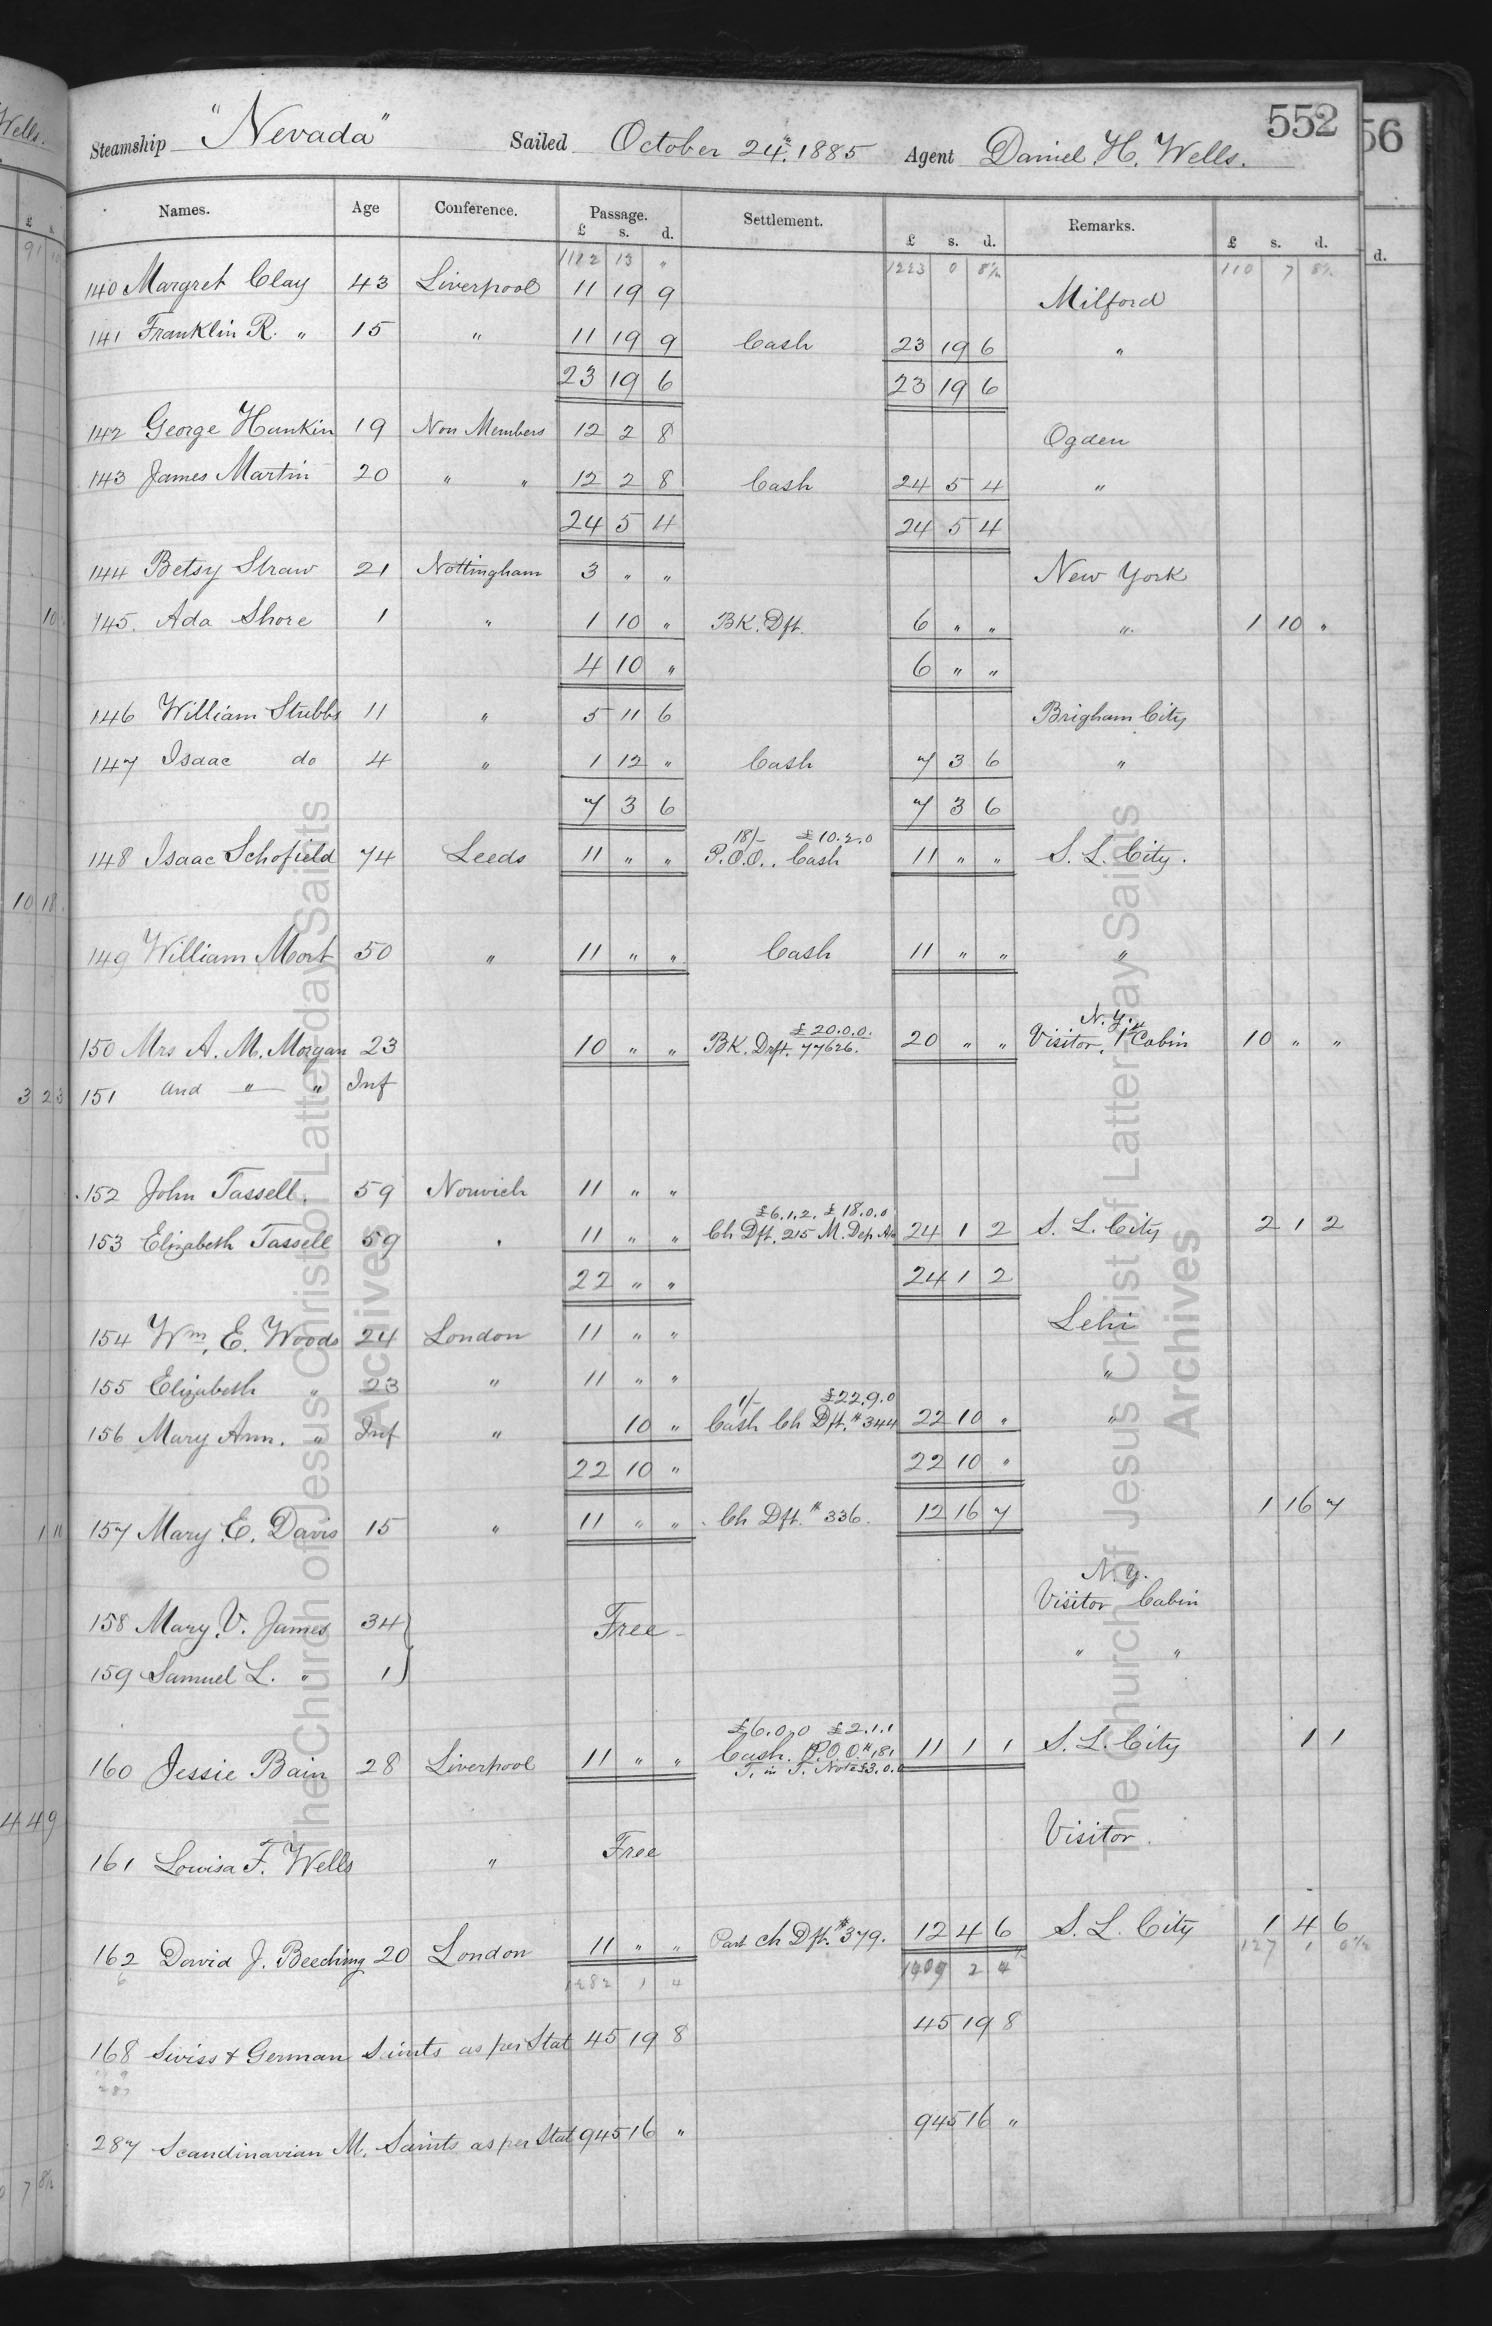 552
56
Steamship "Nevada" Sailed October 24th 1885 Agent Daniel H. Wells.
Names. Age Conference. Passage. Settlement. Remarks.
£ s. d. £ s. d. £ s. d.
1182 13 " 1223 0 8½ 110 7 8½
140 Margret Clay 43 Liverpool 11 19 9 Milford
141 Franklin R. " 15 " 11 19 9 Cash 23 19 6 "
23 19 6 23 19 6
142 George Hunkin 19 Non Members 12 2 8 Ogden
143 James Martin 20 " " 12 2 8 Cash 24 5 4 "
24 5 4 24 5 4
144 Betsy Straw 21 Nottingham 3 " " New York
145. Ada Shore 1 " 1 10 " BK. Dft. 6 " " " 1 10 "
4 10 " 6 " "
146 William Stubbs 11 " 5 11 6 Brigham City
147 Isaac do 4 " 1 12 " Cash 7 3 6 "
7 3 6 7 3 6
18/- £10.2.0
148 Isaac Schofield 74 Leeds 11 " " P.O.O., Cash 11 " " S. L. City.
149 William Mort 50 " 11 " " Cash 11 " " "
£20.0.0. N.Y.
150 Mrs A. M. Morgan 23 10 " " BK. Drft. 77626. 20 " " Visitor, 1st Cabin 10 " "
151 and " " Inf
152 John Tassell. 59 Norwich 11 " "
£6.1.2. £18.0.0
153 Elizabeth Tassell 59 " 11 " " Ch Dft. 215 M. Dep A/c 24 1 2 S. L. City 2 1 2
22 " " 24 1 2
154 Wm. E. Woods 24 London 11 " " Lehi
155 Elizabeth " 23 " 11 " " "
1/- £22.9.0
156 Mary Ann. " Inf " 10 " Cash Ch Dft. # 344 22 10 " "
22 10 " 22 10 "
157 Mary E. Davis 15 " 11 " " Ch Dft. # 336. 12 16 7 1 16 7
N.Y.
158 Mary V. James 34 Free Visitor Cabin
159 Samuel L. " 1 " "
£6.0.0 £2.1.1
160 Jessie Bain 28 Liverpool 11 " " Cash. P.O.O. # 181 11 1 1 S. L. City 1 1
T. in T. Note £3.0.0
161 Louisa F. Wells " Free Visitor.
162 David J. Beeching 20 London 11 " " Part ch Dft. # 379. 12 4 6 S. L. City 1 4 6
6 1282 1 4 1409 2 4½ 127 1 0½
168 Swiss & German Saints as per Stat 45 19 8 45 19 8
287 Scandinavian M. Saints as per Stat 945 16 " 945 16 "
The Church of Jesus Christ of Latter-day Saints
Archives
The Church of Jesus Christ of Latter-day Saints
Archives